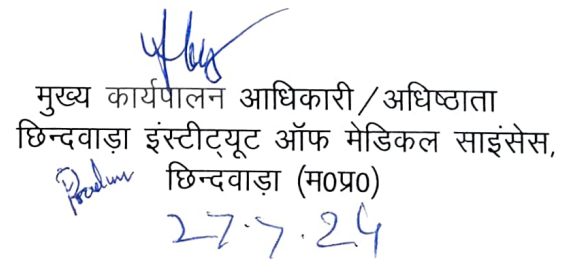 मुख्य कार्यपालन आधिकारी / अधिष्ठाता
छिन्दवाड़ा इंस्टीट्यूट ऑफ मेडिकल साइंसेस,
छिन्दवाड़ा (म0प्र0)
27.7.24